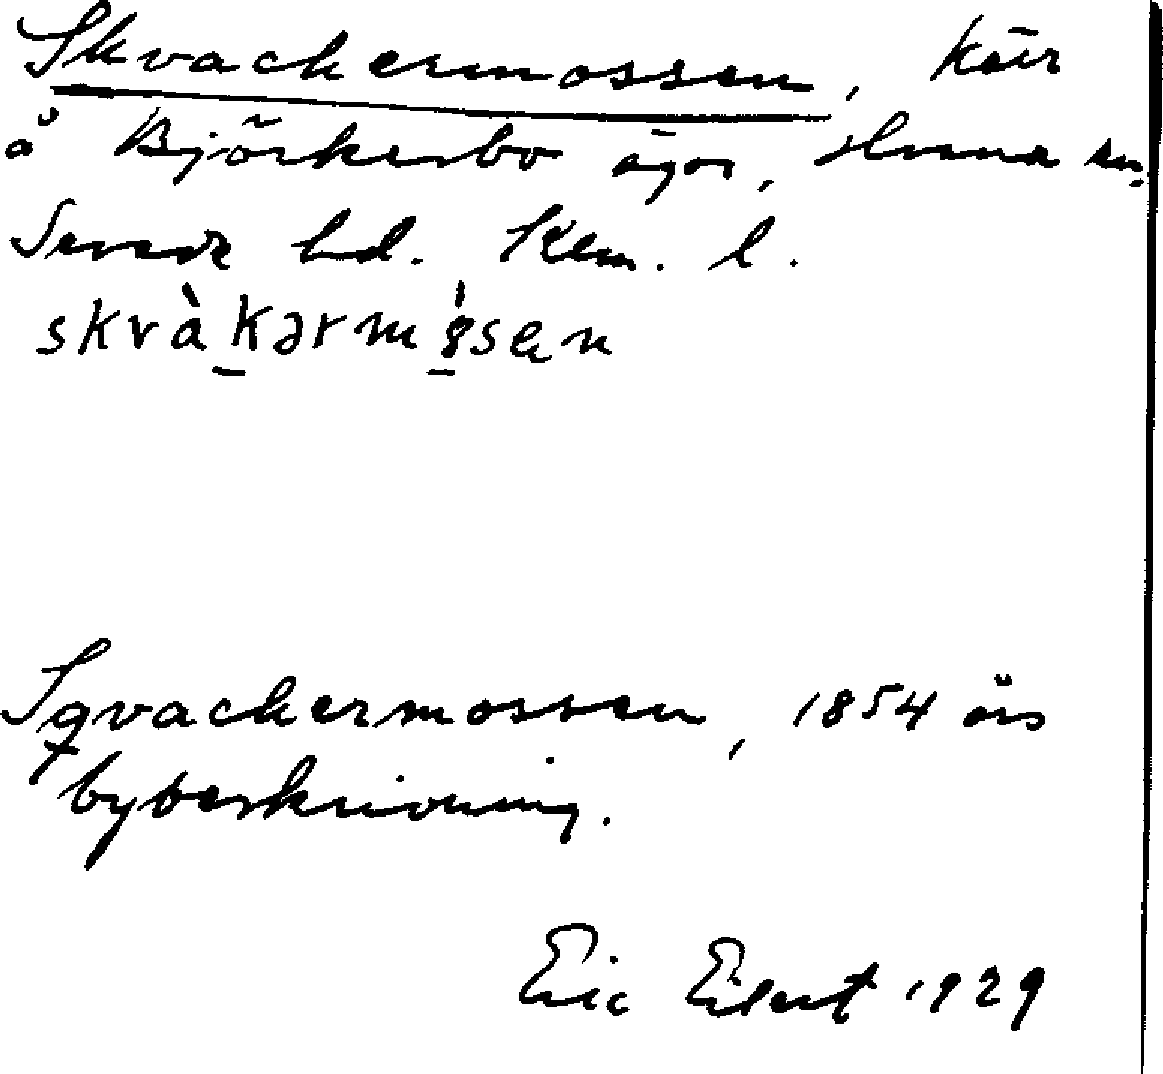 Skvackermossen, kärr
å Björkerbo ägor, Hvena sn.
Sevede hd. Klm. l.
Sqvackermossen, 1854 års
bybeskrivning.
Eric Eilert 1929